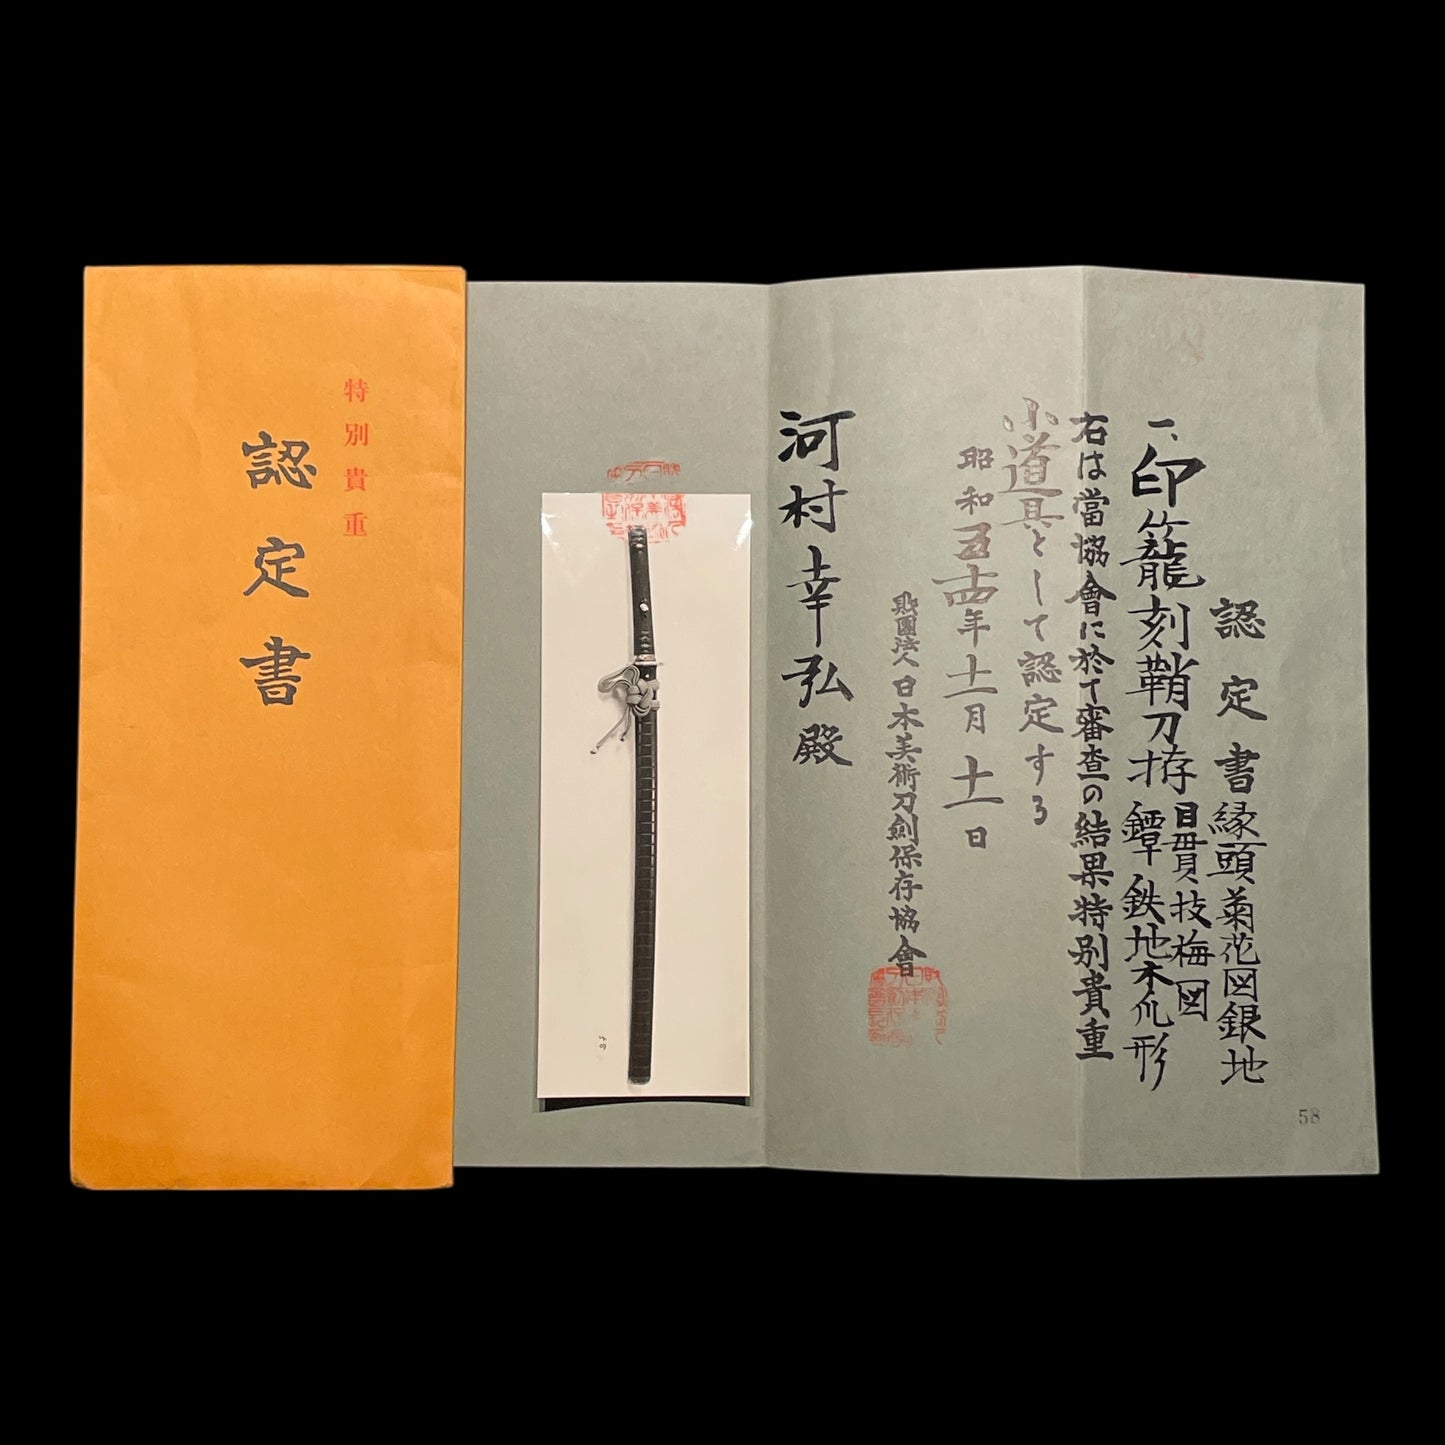 特別貴重
認定書
認定書
縁頭菊花図銀地
目貫枝梅図
一、印籠刻鞘刀拵
鐔鉄地木瓜形
右は當協會に於て審査の結果特別貴重
小道具として認定する
昭和五十四年十一月十一日
財團法人日本美術刀劍保存協會
河村幸弘殿
58